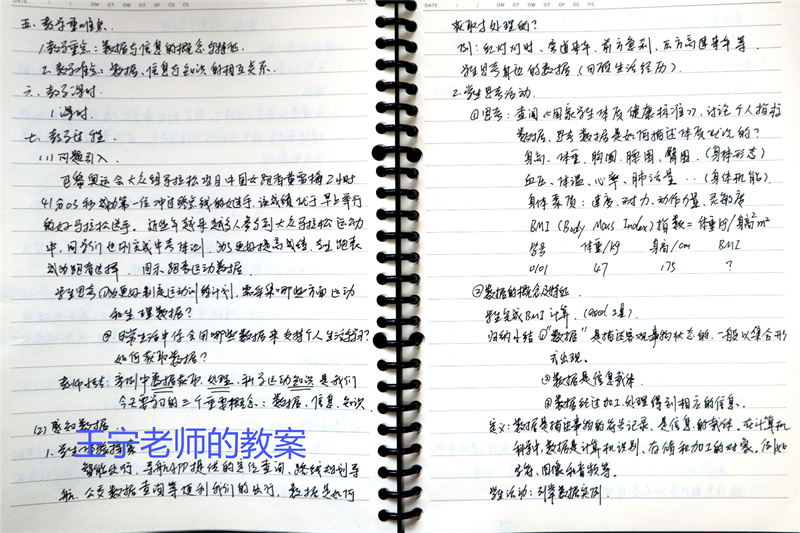 五、教学重难点.
1.教学重点：数据与信息的概念与特征
2.教学难点：数据、信息与知识的相互关系.
六、教学课时.
1课时.
七、教学过程.
(1)问题引入.
巴黎奥运会大众组马拉松当日中国女跑者黄雪梅2小时
41分03秒成功第一位冲过终点线的女选手
的好马拉松选手. 近些年越来越多人参与到大众马拉松运动
中,同学们也
成为跑者选择. 图示跑者运动数据.
学生思考①为更好制定运动训练计划,需采集哪些方面运动
和生理数据?
②日常生活中你会用哪些数据来支持个人生活学习?
如何获取数据?
教师小结：案例中数据获取、处理、利于运动知识是我们
今天要学的三个重要概念：数据、信息、知识.
(2)感知数据
1.学生体验探索
智能出行,导航APP提供的定位查询、路线规划导
航、公交数据查询等便利我们的出行,数据是如何
王宁老师的教案
获取与处理的?
例：红灯对时、弯道来车、前方急刹、左方高速来车等
学生思考身边的数据(回顾生活经历).
2.学生思考活动.
①思考：查阅《国家学生体质健康标准》,讨论个人指标
数据,思考数据是如何描述体质状况的?
身高、体重、胸围、腰围、臀围.(身体形态)
血压、体温、心率、肺活量..(身体机能)
身体素质：速度、耐力、动作力量、灵敏度
BMI(Body Mass Index)指数=体重kg/身高²m²
学号 体重/kg 身高/cm BMI
0101 47 175 ?
②数据的概念及特征
学生完成BMI计算.
归纳小结①"数据"是描述客观事物状态的,一般以集合形
式出现.
②数据是信息载体
③数据经过加工处理得到相应的信息.
定义：数据是描述事物的符号记录,是信息的载体.在计算机
科学中,数据是计算机识别、存储和加工的对象,
字符、图像和音频等.
学生活动：列举数据实例.